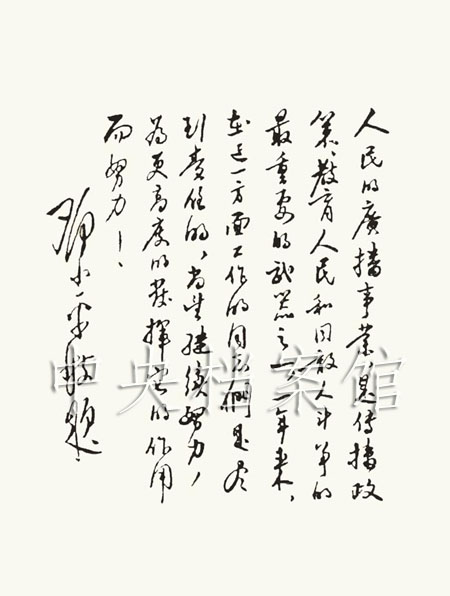 人民的廣播事業,是传播政
策、教育人民和同敌人斗争的
最重要的武器之一。一年来,
在这一方面工作的同志們是尽
到责任的,尚望继续努力,
為更高度的發揮它的作用
而努力!
邓小平敬题
中央档案馆